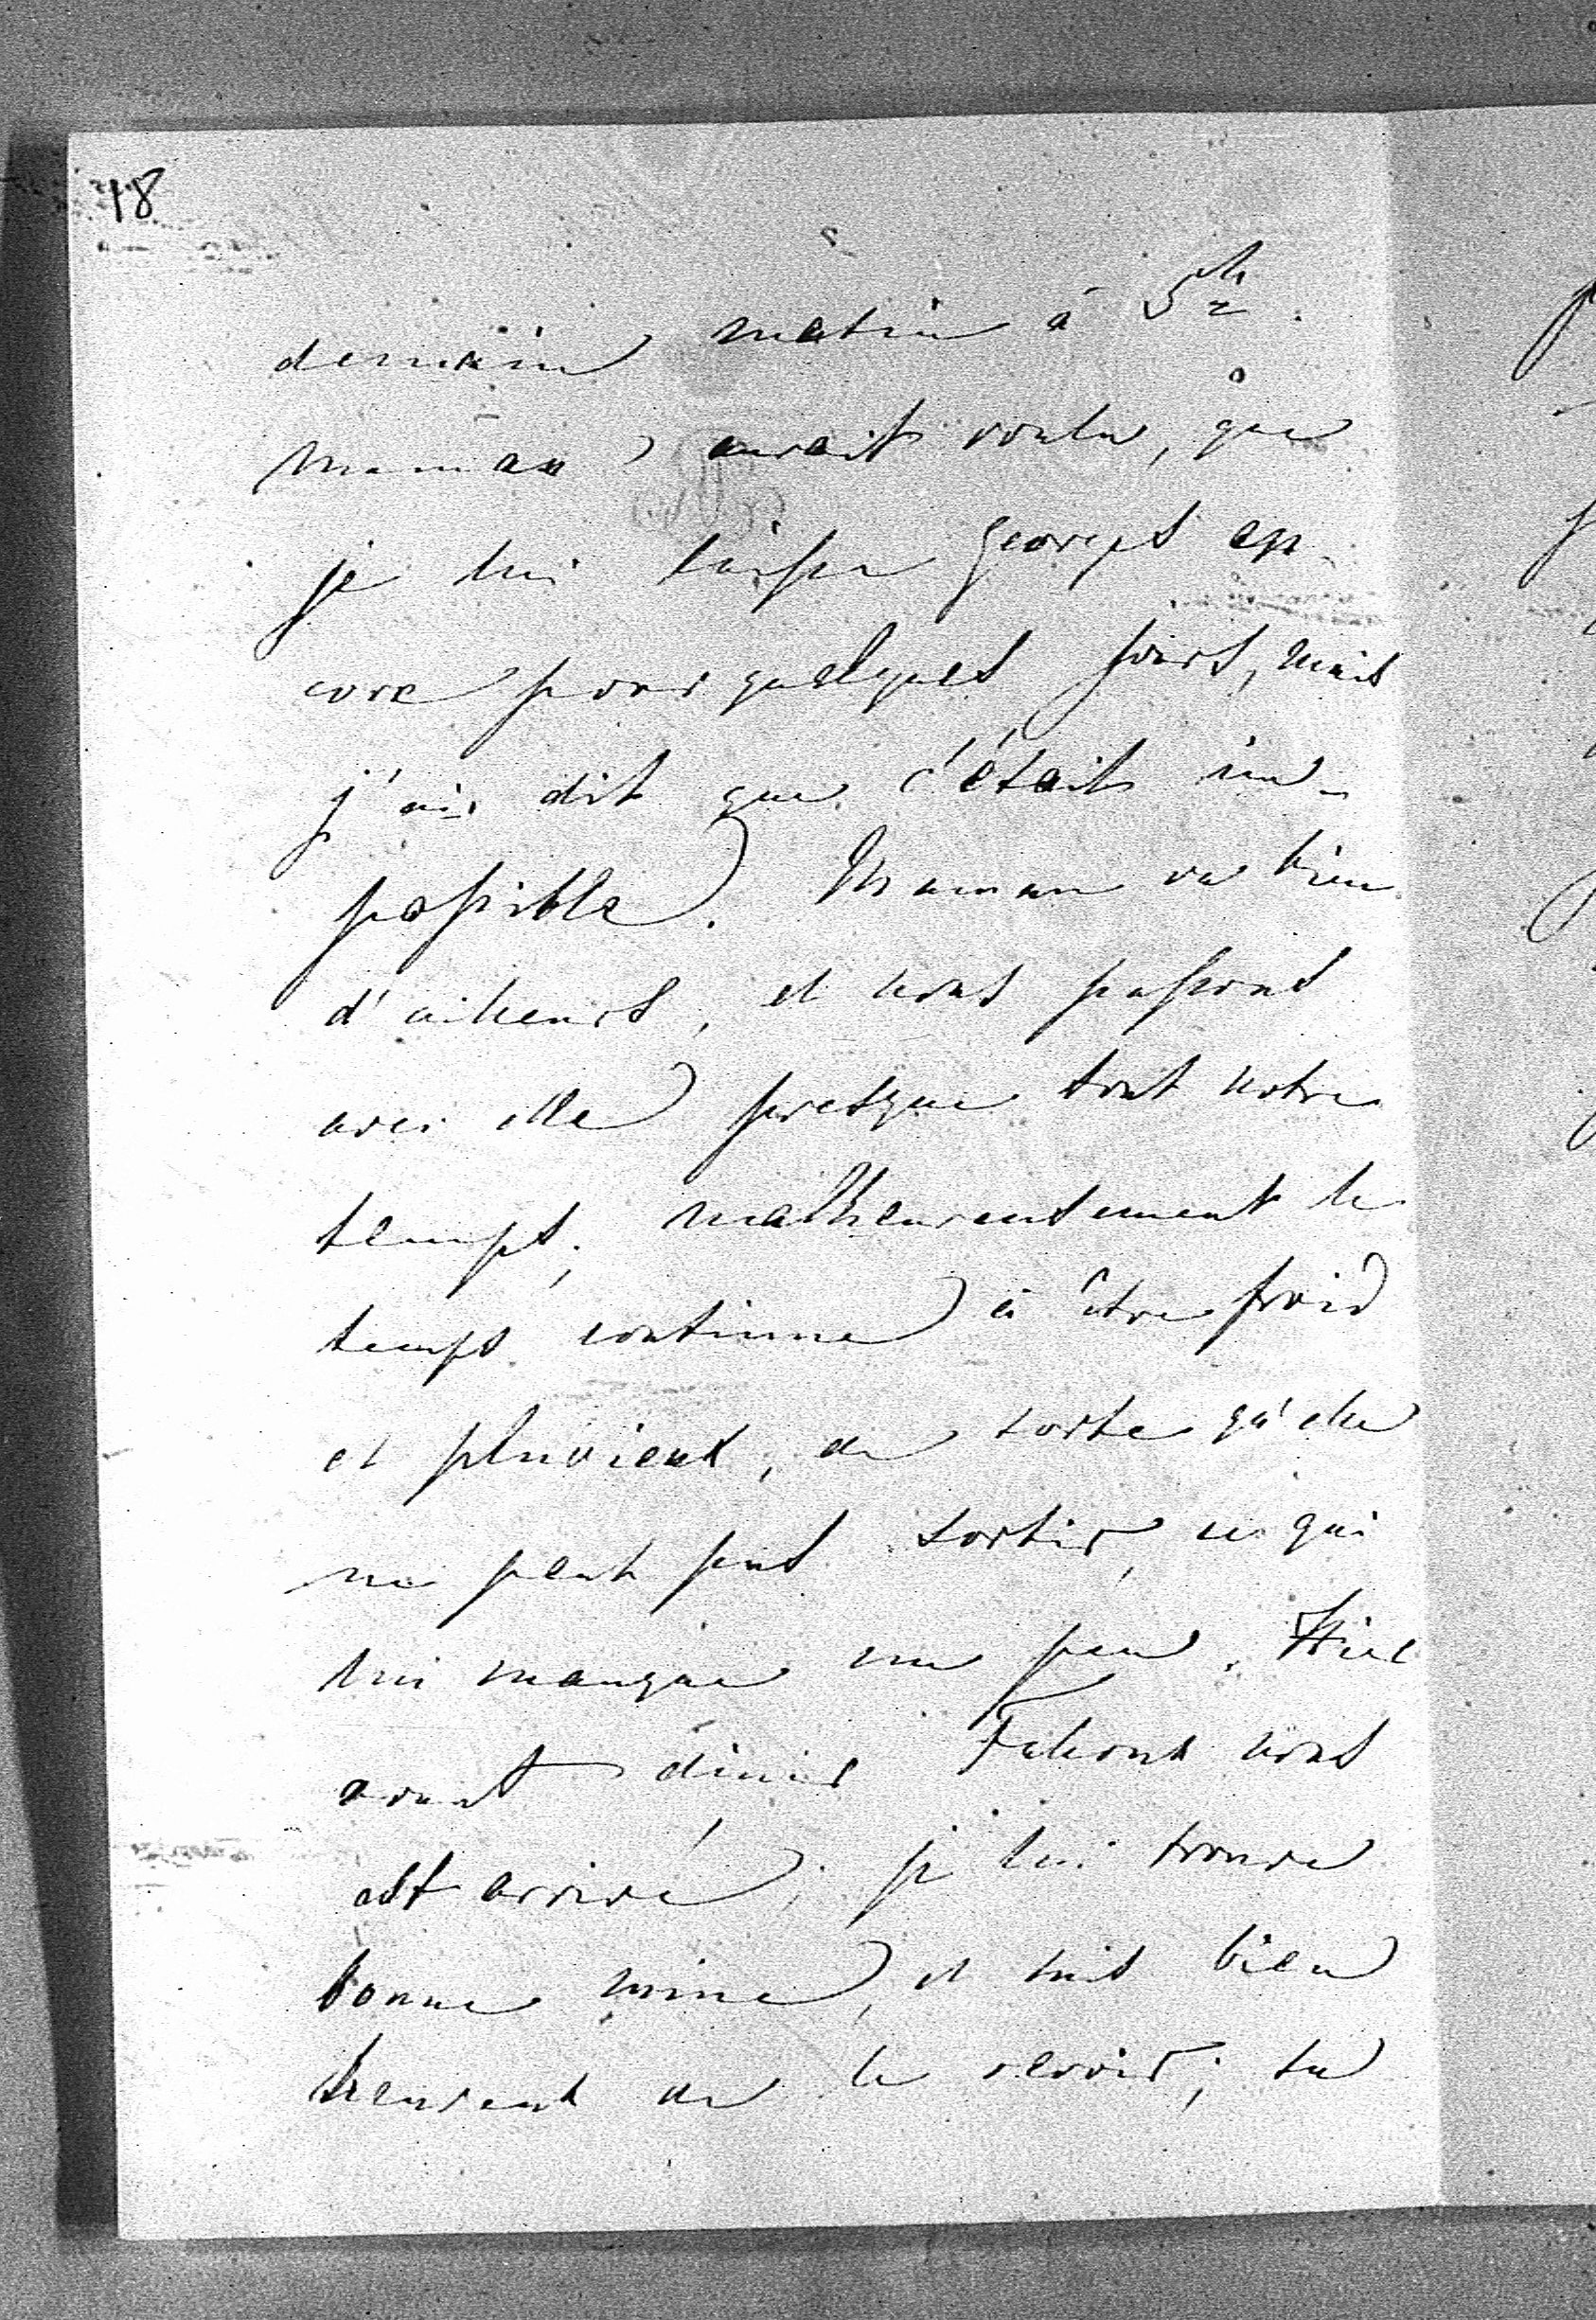 18
demain matin à 5 h.
maman aurait voulu, que
je lui laisse Georges en-
core pour quelques jours, mais
j'ai dit que c'était im-
possible. Maman va bien
d'ailleurs, et nous passons
avec elle presque tout notre
temps; malheureusement le
temps continue à être froid
et pluvieux, de sorte qu'elle
ne peut pas sortir, ce qui
lui manque un peu. Hier
avant dîner nous
est arrivé; je lui trouve
bonne mine, et suis bien
heureux de le revoir; sa